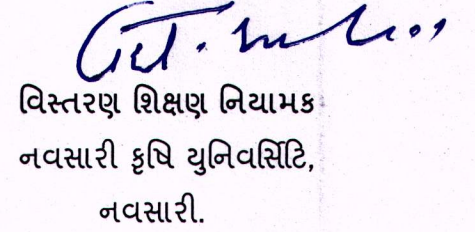 વિસ્તરણ શિક્ષણ નિયામક
નવસારી કૃષિ યુનિવર્સિટિ,
નવસારી.